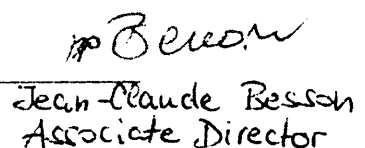 pp Besson
Jean-Claude Besson
Associate Director